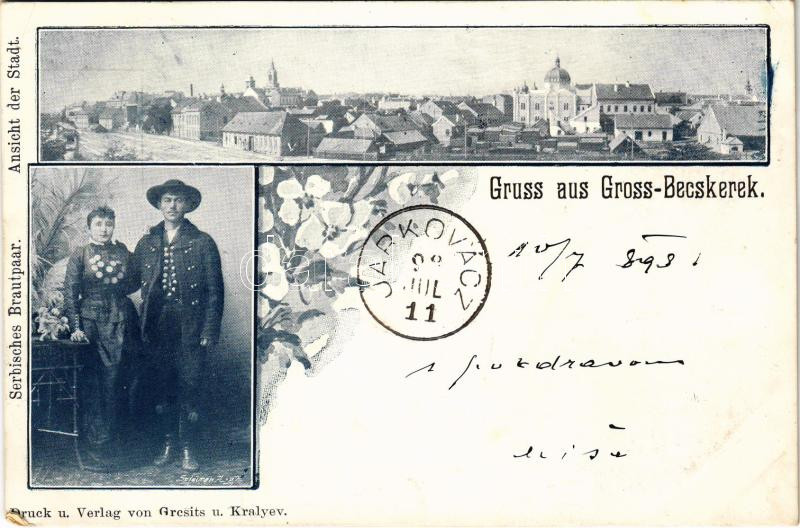 Ansicht der Stadt.
Serbisches Brautpaar.
Gruss aus Gross-Becskerek.
JARKOVÁCZ
JUL
11
10/7 898
s pozdravom
Druck u. Verlag von Gresits u. Kralyev.